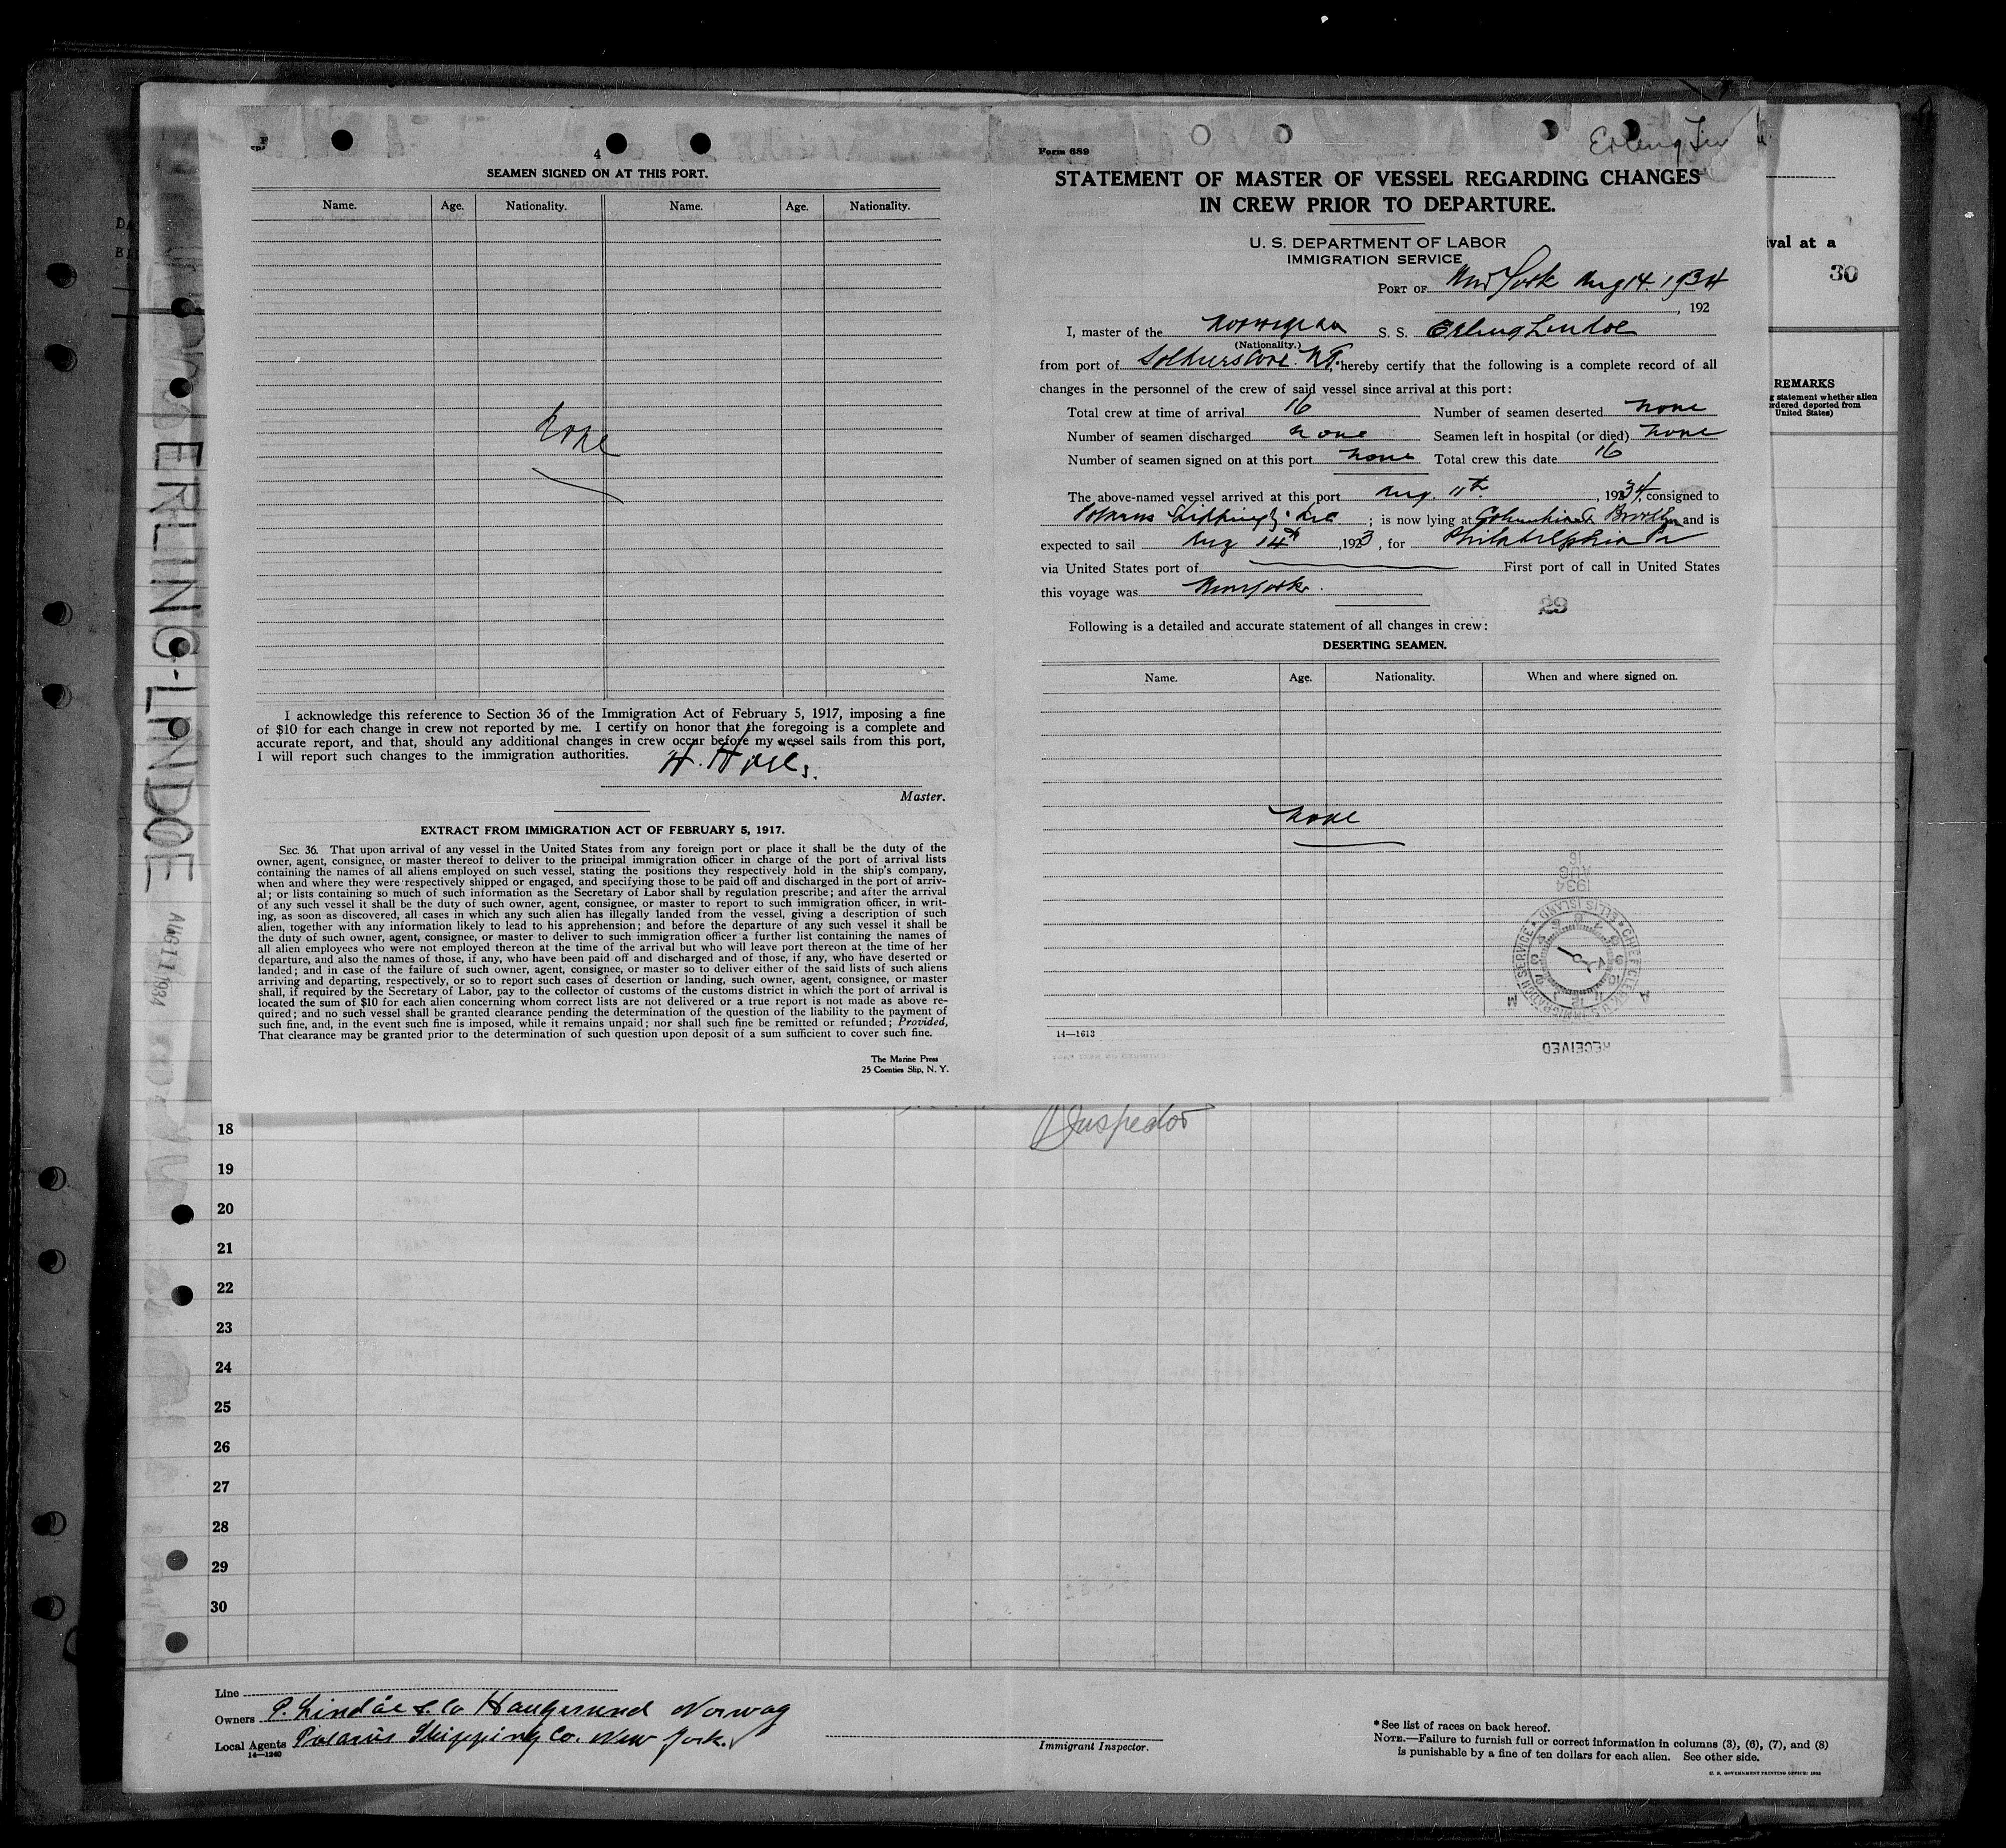 4
SEAMEN SIGNED ON AT THIS PORT.
Name. Age. Nationality. Name. Age. Nationality.
None
I acknowledge this reference to Section 36 of the Immigration Act of February 5, 1917, imposing a fine
of $10 for each change in crew not reported by me. I certify on honor that the foregoing is a complete and
accurate report, and that, should any additional changes in crew occur before my vessel sails from this port,
I will report such changes to the immigration authorities.
H.
Master.
EXTRACT FROM IMMIGRATION ACT OF FEBRUARY 5, 1917.
SEC. 36. That upon arrival of any vessel in the United States from any foreign port or place it shall be the duty of the
owner, agent, consignee, or master thereof to deliver to the principal immigration officer in charge of the port of arrival lists
containing the names of all aliens employed on such vessel, stating the positions they respectively hold in the ship's company,
when and where they were respectively shipped or engaged, and specifying those to be paid off and discharged in the port of arriv-
al; or lists containing so much of such information as the Secretary of Labor shall by regulation prescribe; and after the arrival
of any such vessel it shall be the duty of such owner, agent, consignee, or master to report to such immigration officer, in writ-
ing, as soon as discovered, all cases in which any such alien has illegally landed from the vessel, giving a description of such
alien, together with any information likely to lead to his apprehension; and before the departure of any such vessel it shall be
the duty of such owner, agent, consignee, or master to deliver to such immigration officer a further list containing the names of
all alien employees who were not employed thereon at the time of the arrival but who will leave port thereon at the time of her
departure, and also the names of those, if any, who have been paid off and discharged and of those, if any, who have deserted or
landed; and in case of the failure of such owner, agent, consignee, or master so to deliver either of the said lists of such aliens
arriving and departing, respectively, or so to report such cases of desertion or landing, such owner, agent, consignee, or master
shall, if required by the Secretary of Labor, pay to the collector of customs of the customs district in which the port of arrival is
located the sum of $10 for each alien concerning whom correct lists are not delivered or a true report is not made as above re-
quired; and no such vessel shall be granted clearance pending the determination of the question of the liability to the payment of
such fine, and, in the event such fine is imposed, while it remains unpaid; nor shall such fine be remitted or refunded; Provided,
That clearance may be granted prior to the determination of such question upon deposit of a sum sufficient to cover such fine.
The Marine Press
25 Coenties Slip, N. Y.
Form 689
Erling
STATEMENT OF MASTER OF VESSEL REGARDING CHANGES
IN CREW PRIOR TO DEPARTURE.
U. S. DEPARTMENT OF LABOR
IMMIGRATION SERVICE
PORT OF New York Aug 14. 1934
, 192
I, master of the Norwegian S. S. Erling Lindoe
(Nationality.)
from port of hereby certify that the following is a complete record of all
changes in the personnel of the crew of said vessel since arrival at this port:
Total crew at time of arrival 16 Number of seamen deserted none
Number of seamen discharged none Seamen left in hospital (or died) none
Number of seamen signed on at this port none Total crew this date 16
The above-named vessel arrived at this port Aug. 11th , 1934, consigned to
Shipping ; is now lying at and is
expected to sail Aug 14th , 1923, for Philadelphia Pa
via United States port of First port of call in United States
this voyage was New York.
29
Following is a detailed and accurate statement of all changes in crew:
DESERTING SEAMEN.
Name. Age. Nationality. When and where signed on.
None
16
AUG
1934
ELLIS ISLAND
A M
RECEIVED
14—1613
ERLING-LINDOE
AUG 11 1934
val at a
30
REMARKS
statement whether alien
ordered deported from
United States)
Inspector
18
19
20
21
22
23
24
25
26
27
28
29
30
Line
Owners P. Lindöe & Co Haugesund Norway
Local Agents Polarus Shipping Co. New York.
14—1240
Immigrant Inspector.
*See list of races on back hereof.
NOTE.—Failure to furnish full or correct information in columns (3), (6), (7), and (8)
is punishable by a fine of ten dollars for each alien. See other side.
U. S. GOVERNMENT PRINTING OFFICE: